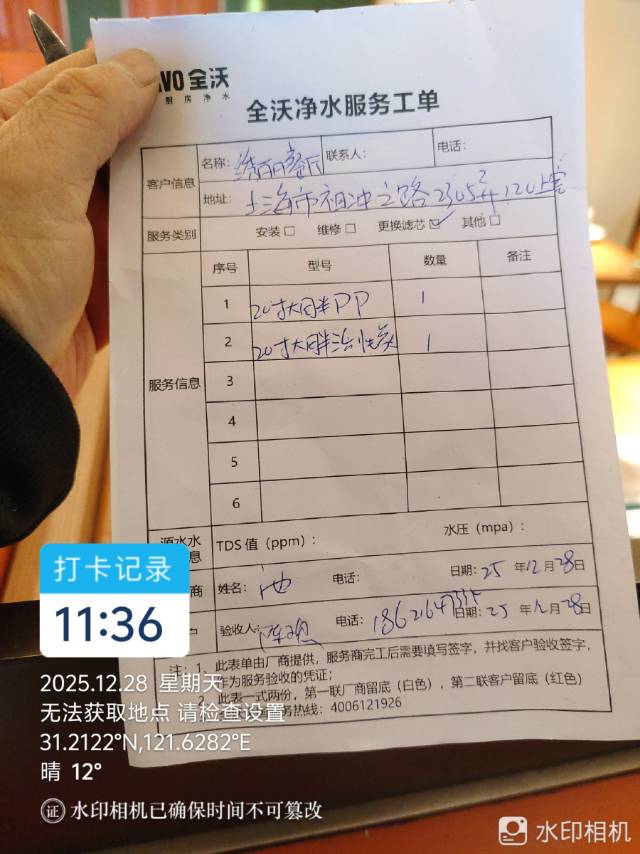 VO 全沃
厨房净水
全沃净水服务工单
客户信息
名称:
联系人:
电话:
地址: 上海市祖冲之路2305
服务类别
安装□ 维修□ 更换滤芯☑ 其他□
服务信息
序号 型号 数量 备注
1 20寸大胖PP 1
2 20寸大胖活性炭 1
3
4
5
6
源水水
息
TDS 值 (ppm): 水压 (mpa):
商
姓名: 电话: 日期: 25 年 12 月 28 日
验收人: 电话: 日期: 25 年 12 月 28 日
注: 1、此表单由厂商提供，服务商完工后需要填写签字，并找客户验收签字，
作为服务验收的凭证;
2、此表一式两份，第一联厂商留底 (白色)，第二联客户留底 (红色)
务热线: 4006121926
打卡记录
11:36
2025.12.28 星期天
无法获取地点 请检查设置
31.2122°N,121.6282°E
晴 12°
证 水印相机已确保时间不可篡改
水印相机